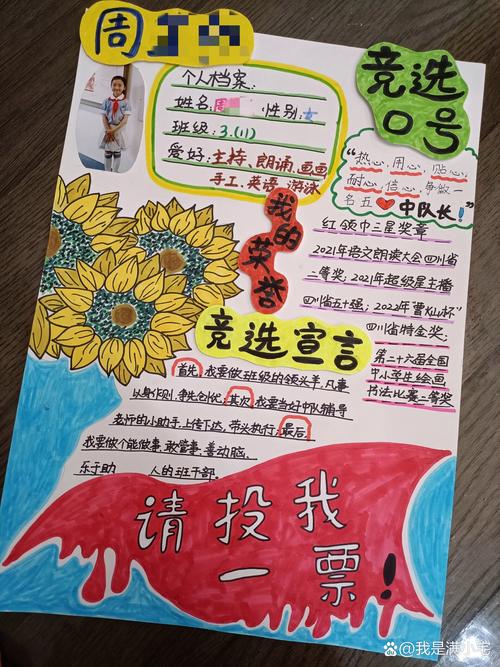 周
个人档案:
姓名:周 性别:女
班级:3.(11)
爱好:主持、朗诵、画画、
手工、英语、游泳
竞选
口号
"热心,用心,贴心,
耐心,信心,争做一
名五❤中队长!"
我的荣誉
红领巾三星奖章
2021年语文朗读大会四川省
二等奖;2021年超级星主播
四川省五十强;2022年"曹灿杯"
四川省特金奖;
第二十六届全国
中小学生绘画
书法比赛二等奖
竞选宣言
首先,我要做班级的领头羊,凡事
以身作则,争先创优;其次,我要当好中队辅导
老师的小助手,上传下达,带头执行;最后,
我要做个能做事,敢管事,善动脑,
乐于助 人的班干部.
请投我
一票!
Bai百度 @我是满小宅